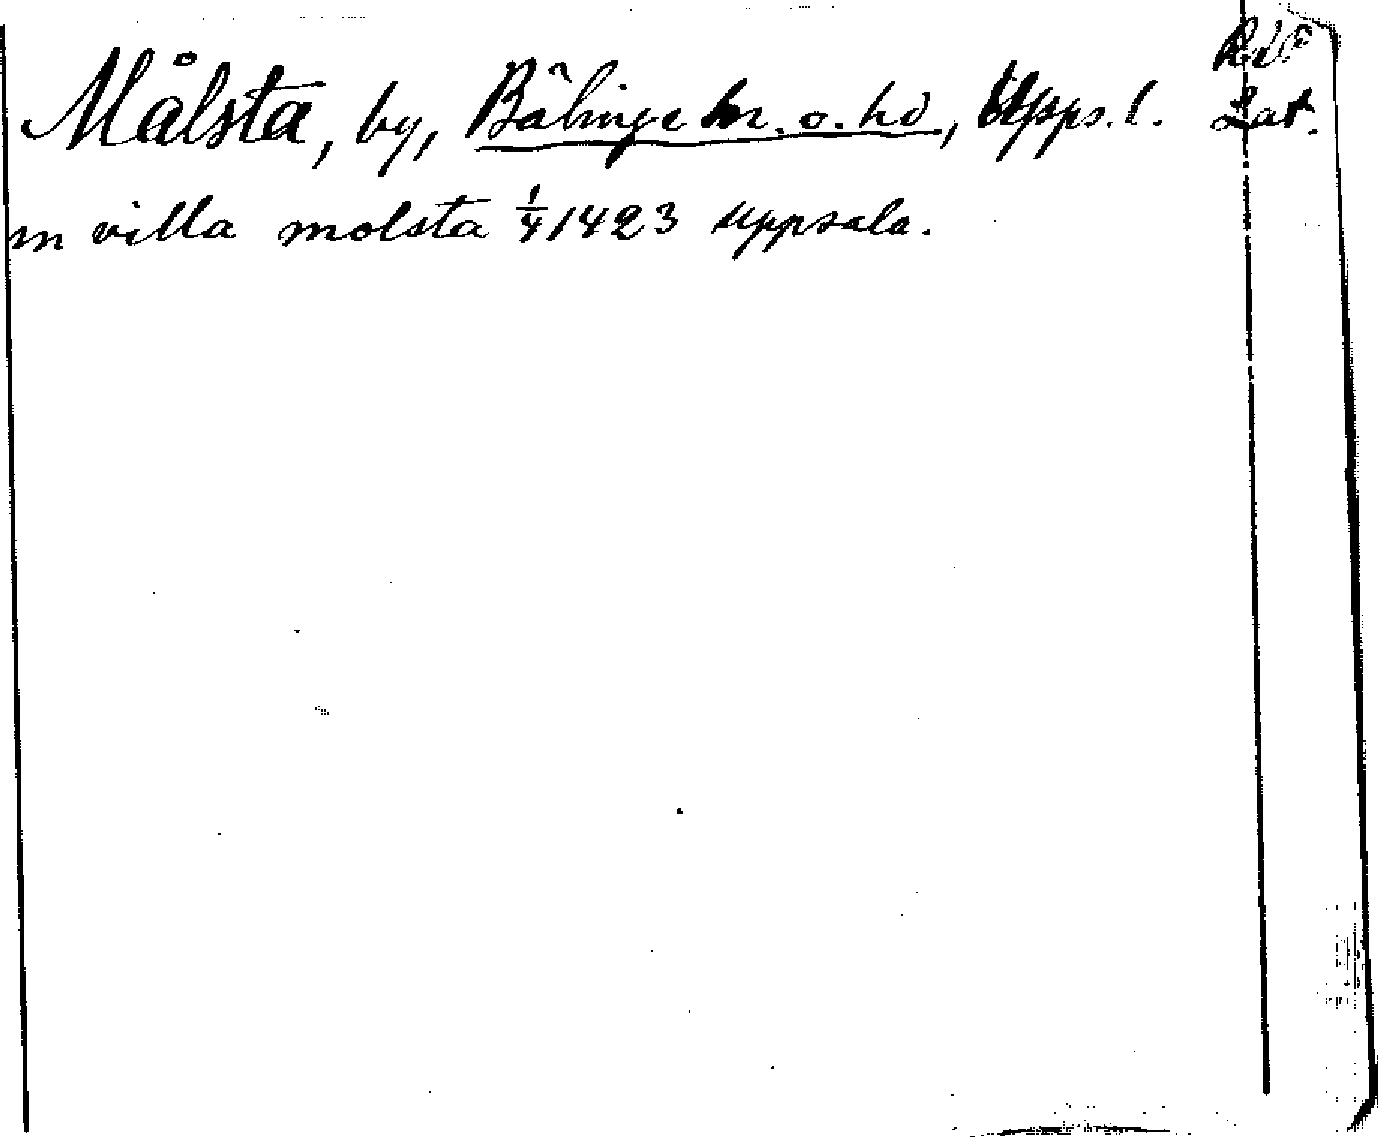 Målsta, by, Bälinge sn. o. hd, Upps. l. RAP
Lat.
in villa molsta 1/4 1423 Uppsala.